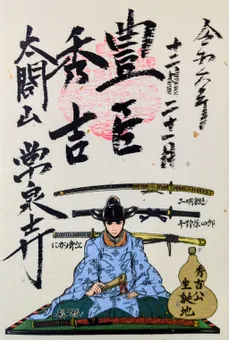 令和六年
十二月二十一日
豊臣
秀吉
太閤山
常泉寺
にっかり青江
秀吉公
生誕地